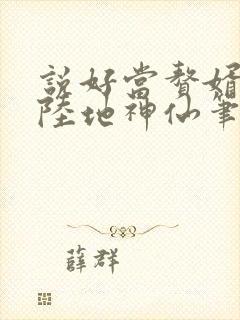 說好當贅婿
陸地神仙筆
薛群